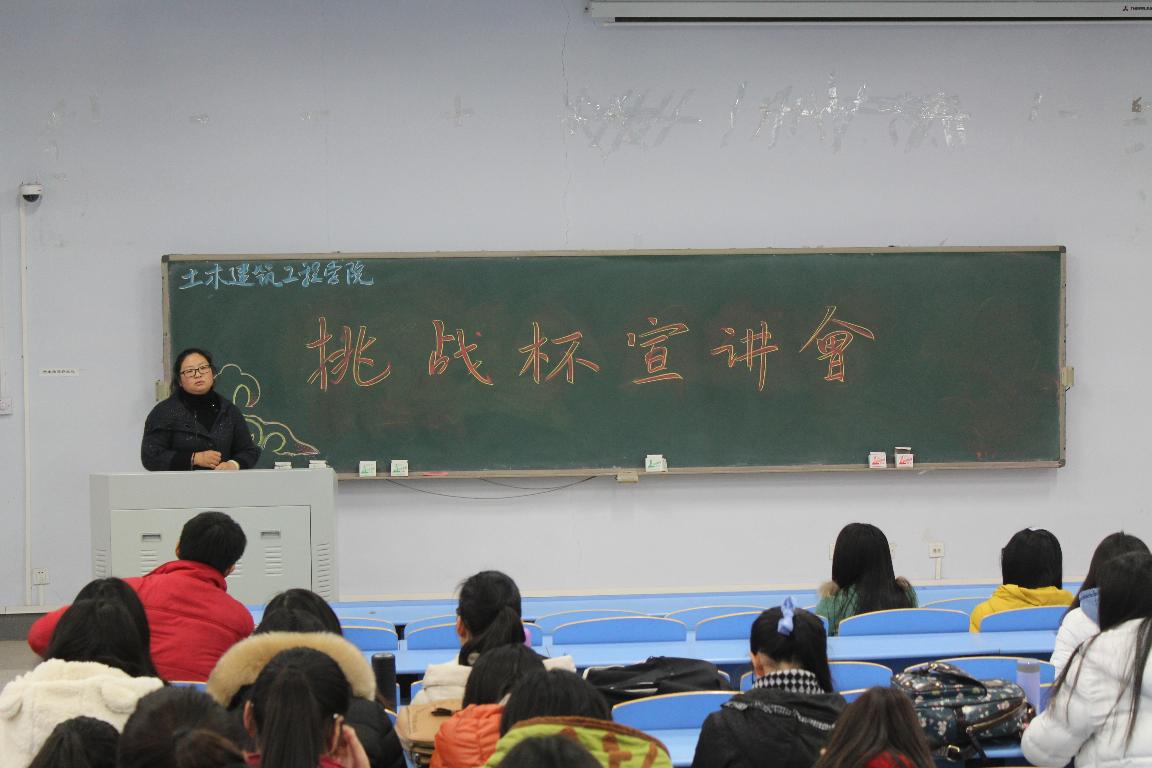 土木建筑工程学院
挑战杯宣讲會